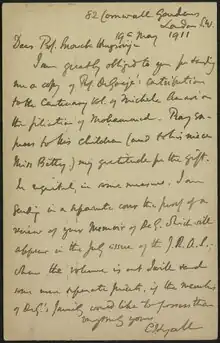 82 Cornwall Gardens
London S.W.
19th May 1911
Dear Prof. Snouck Hurgronje
I am greatly obliged to you for sending
me a copy of Prof. De Goeje's contribution
to the Centenary Vol. of Michele Amari on
the filiation of Mohammed. Pray ex-
press to his children (and to his niece
Miss Betty) my gratitude for the gift.
In requital, in some measure, I am
sending in a separate cover the proof of a
review of your Memoir of De G. which will
appear in the July issue of the J.R.A.S.:
when the volume is out I will send
some more separate prints, if the members
of De G.'s family would like to possess them
yours
C J Lyall